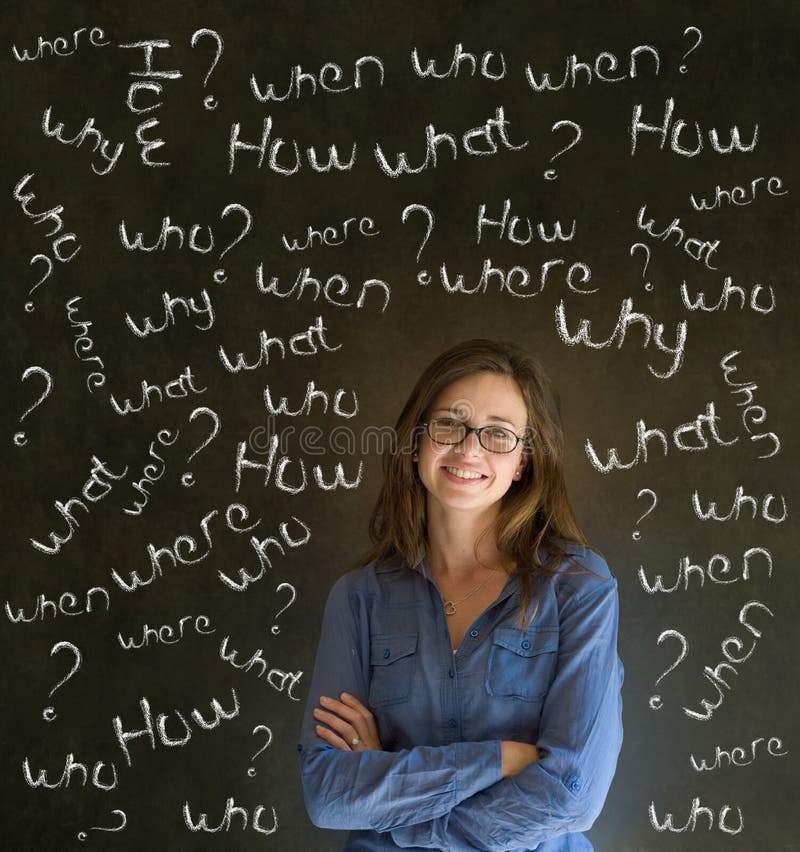 where
How ?
when who when ?
why
How what ? How
where
who
who ? where ? How what
when where ?
who
? where why what why
? what who when
what where ? How what
? who
where who
when
when where ?
what ? when
How
who ? where
? who who